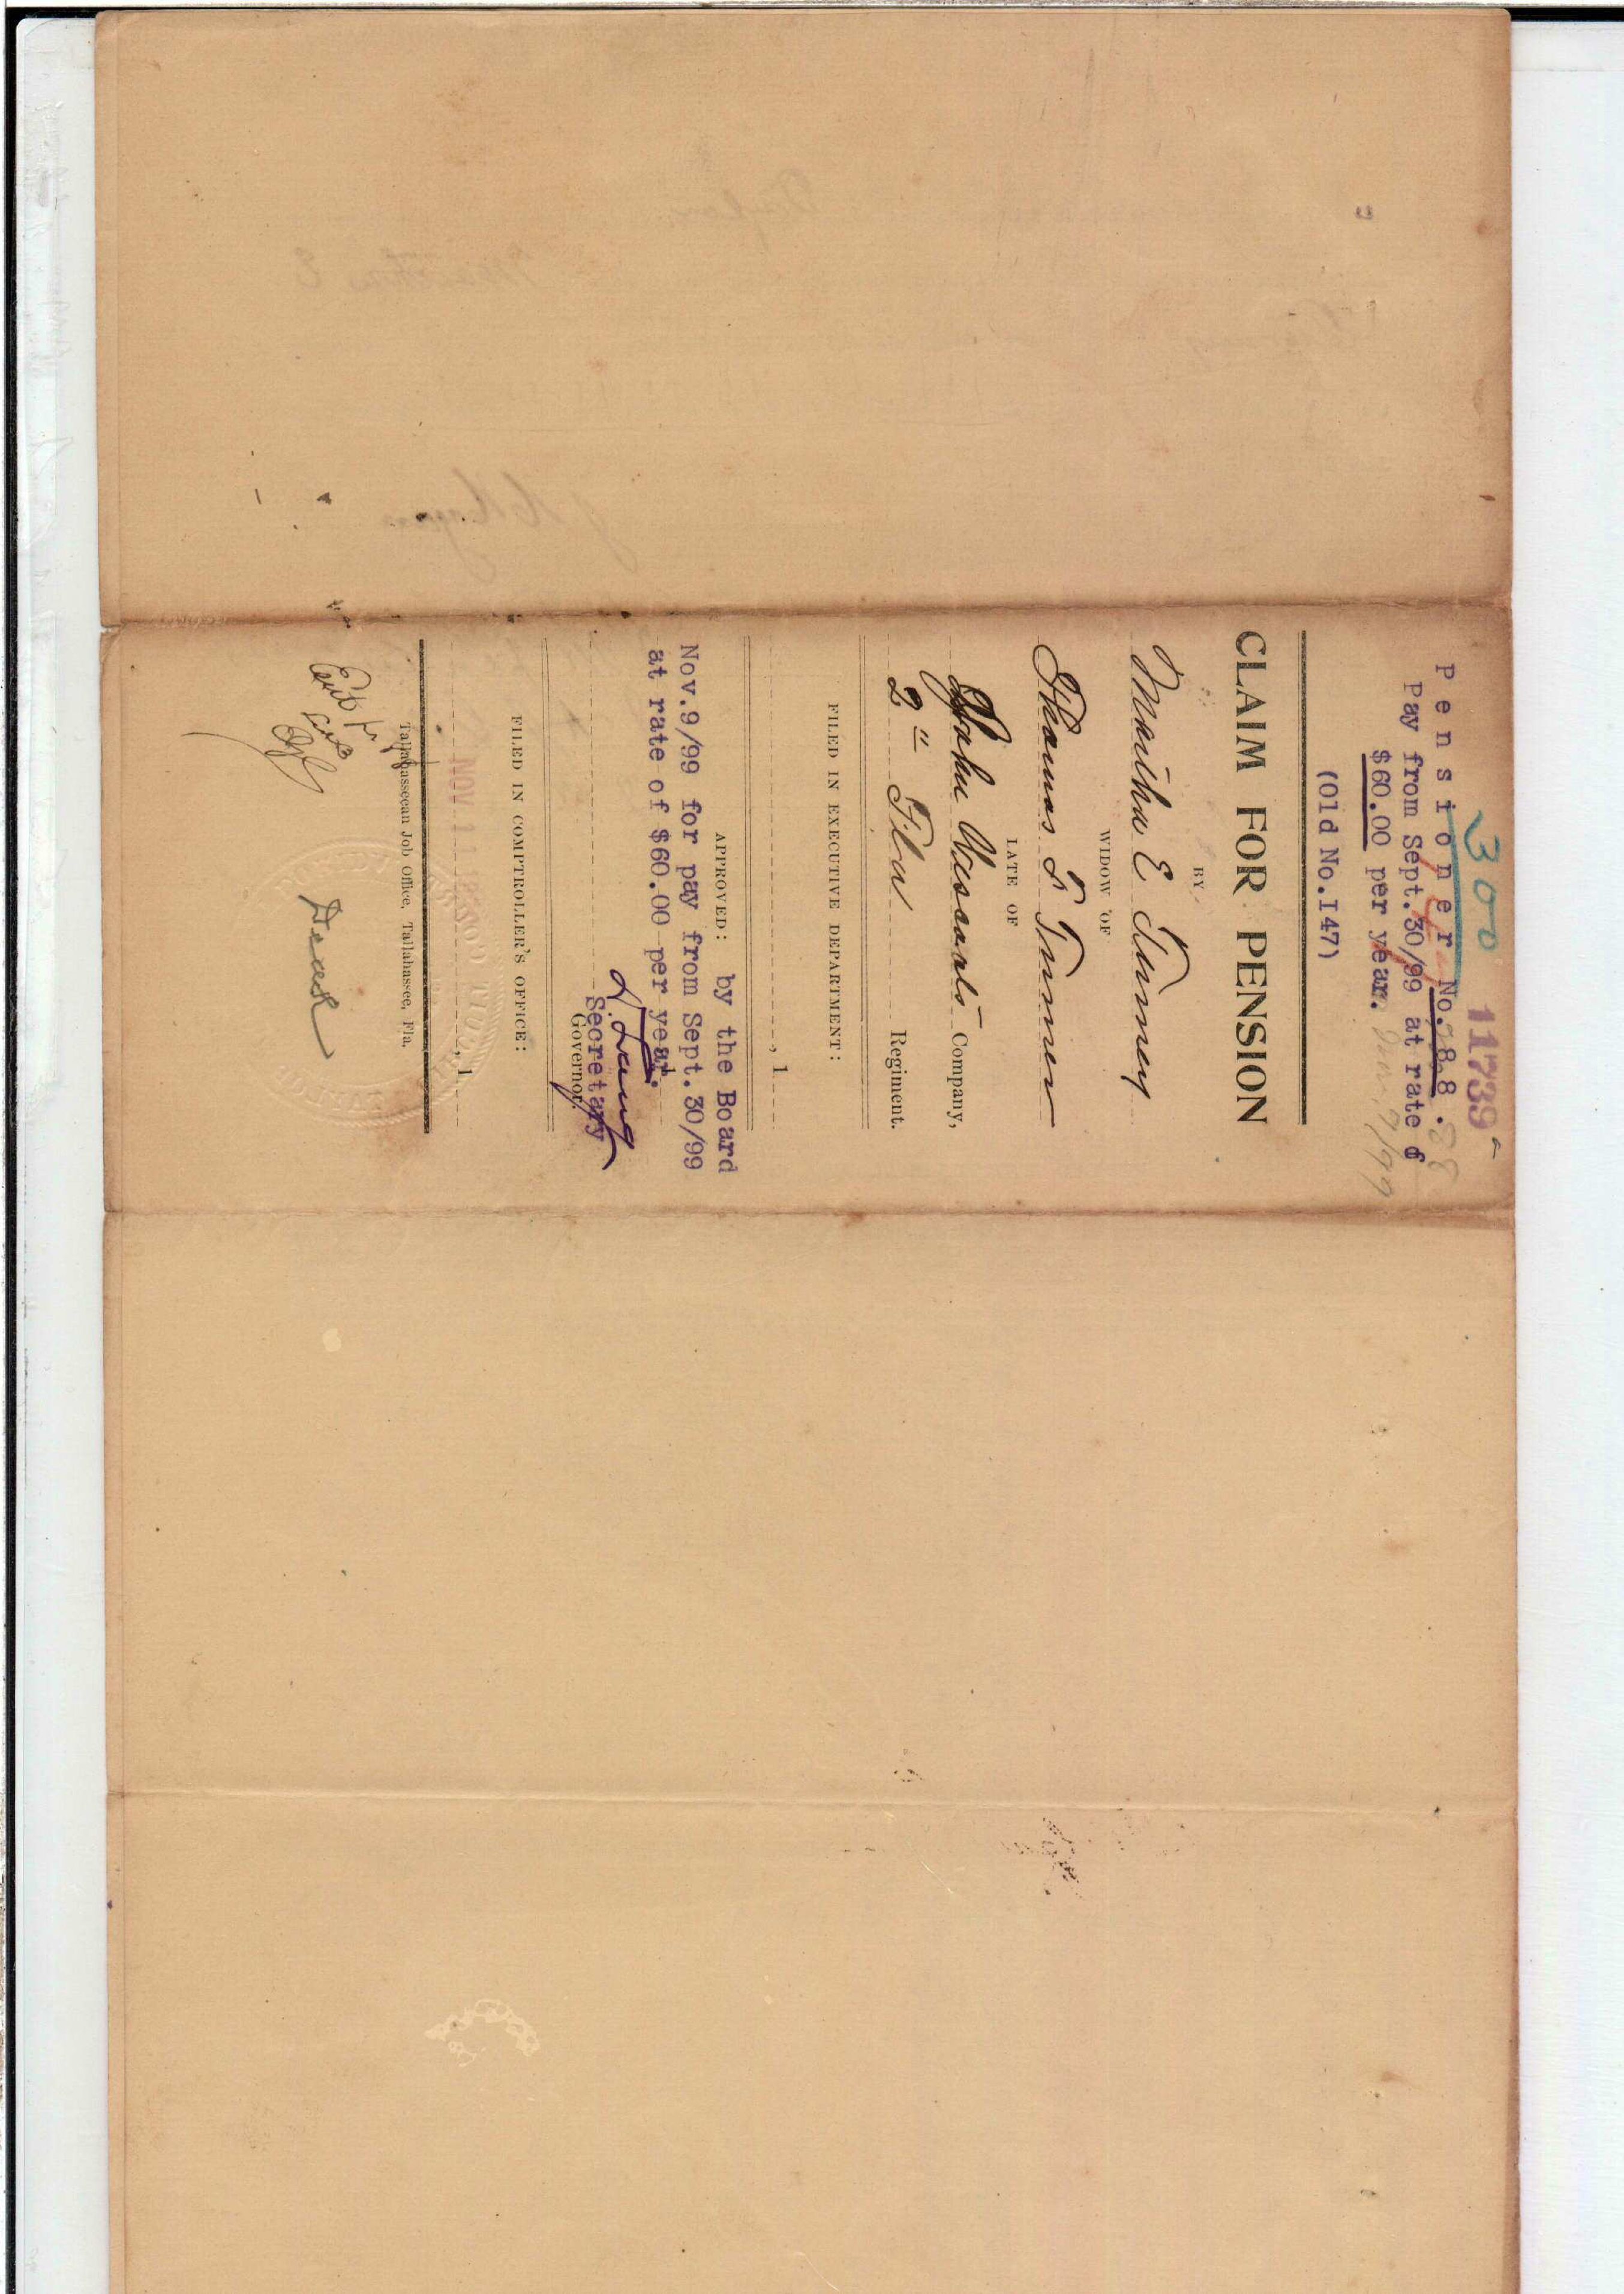 300 11739
Pensioner No. 88. 88
Pay from Sept.30/99 at rate of
$60.00 per year.
(Old No.147)
CLAIM FOR PENSION
BY
Martha E Turner
WIDOW OF
Thomas L Turner
LATE OF
John Company,
2" Fla Regiment.
FILED IN EXECUTIVE DEPARTMENT:
, 1
APPROVED: by the Board
Nov.9/99 for pay from Sept.30/99
at rate of $60.00 per year.
Secretary
Governor.
FILED IN COMPTROLLER'S OFFICE:
NOV 1
, 1
Tallahasseean Job Office, Tallahassee, Fla.
Dead